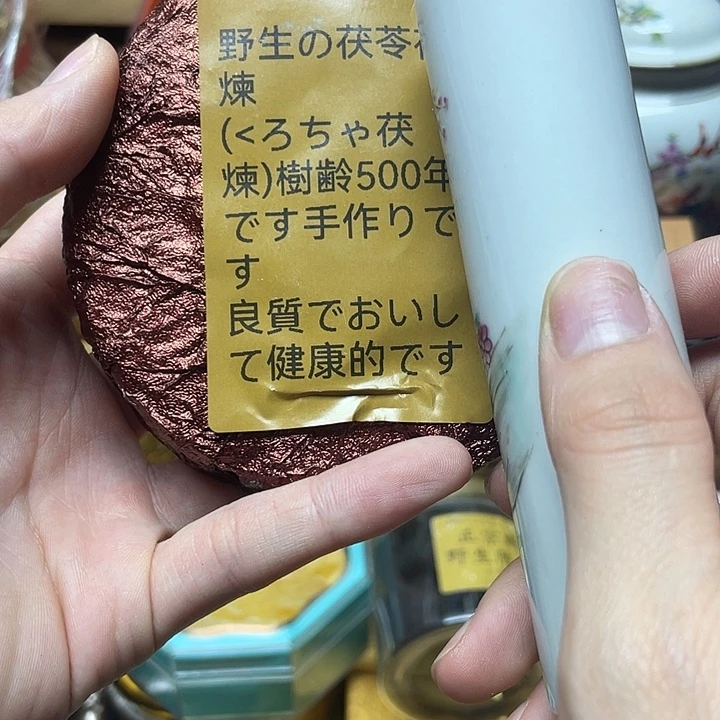 野生の茯苓
煉
(<ろちゃ茯
煉)樹齢500年
です手作りで
す
良質でおいし
て健康的です